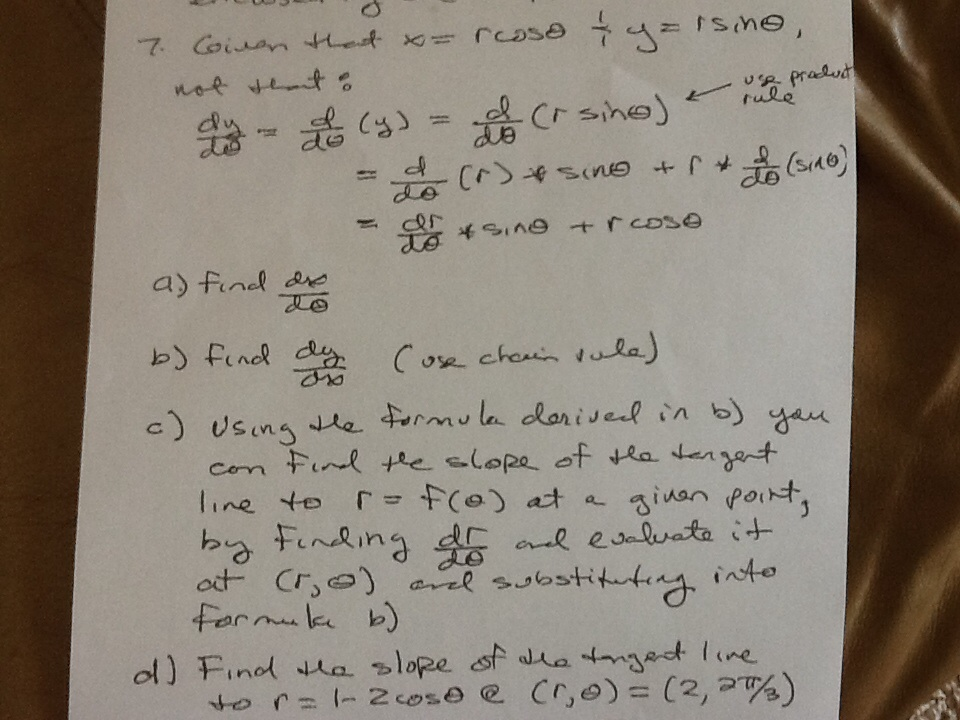 7. Given that x = r cosθ & y = r sinθ,
not that :
dy/dθ = d/dθ (y) = d/dθ (r sinθ) ← use product rule
= d/dθ (r) * sinθ + r * d/dθ (sinθ)
= dr/dθ * sinθ + r cosθ
a) Find dx/dθ
b) Find dy/dx (use chain rule)
c) Using the formula derived in b) you
can find the slope of the tangent
line to r = f(θ) at a given point,
by finding dr/dθ and evaluate it
at (r, θ) and substituting into
formula b)
d) Find the slope of the tangent line
to r = 1 - 2cosθ @ (r, θ) = (2, 2π/3)